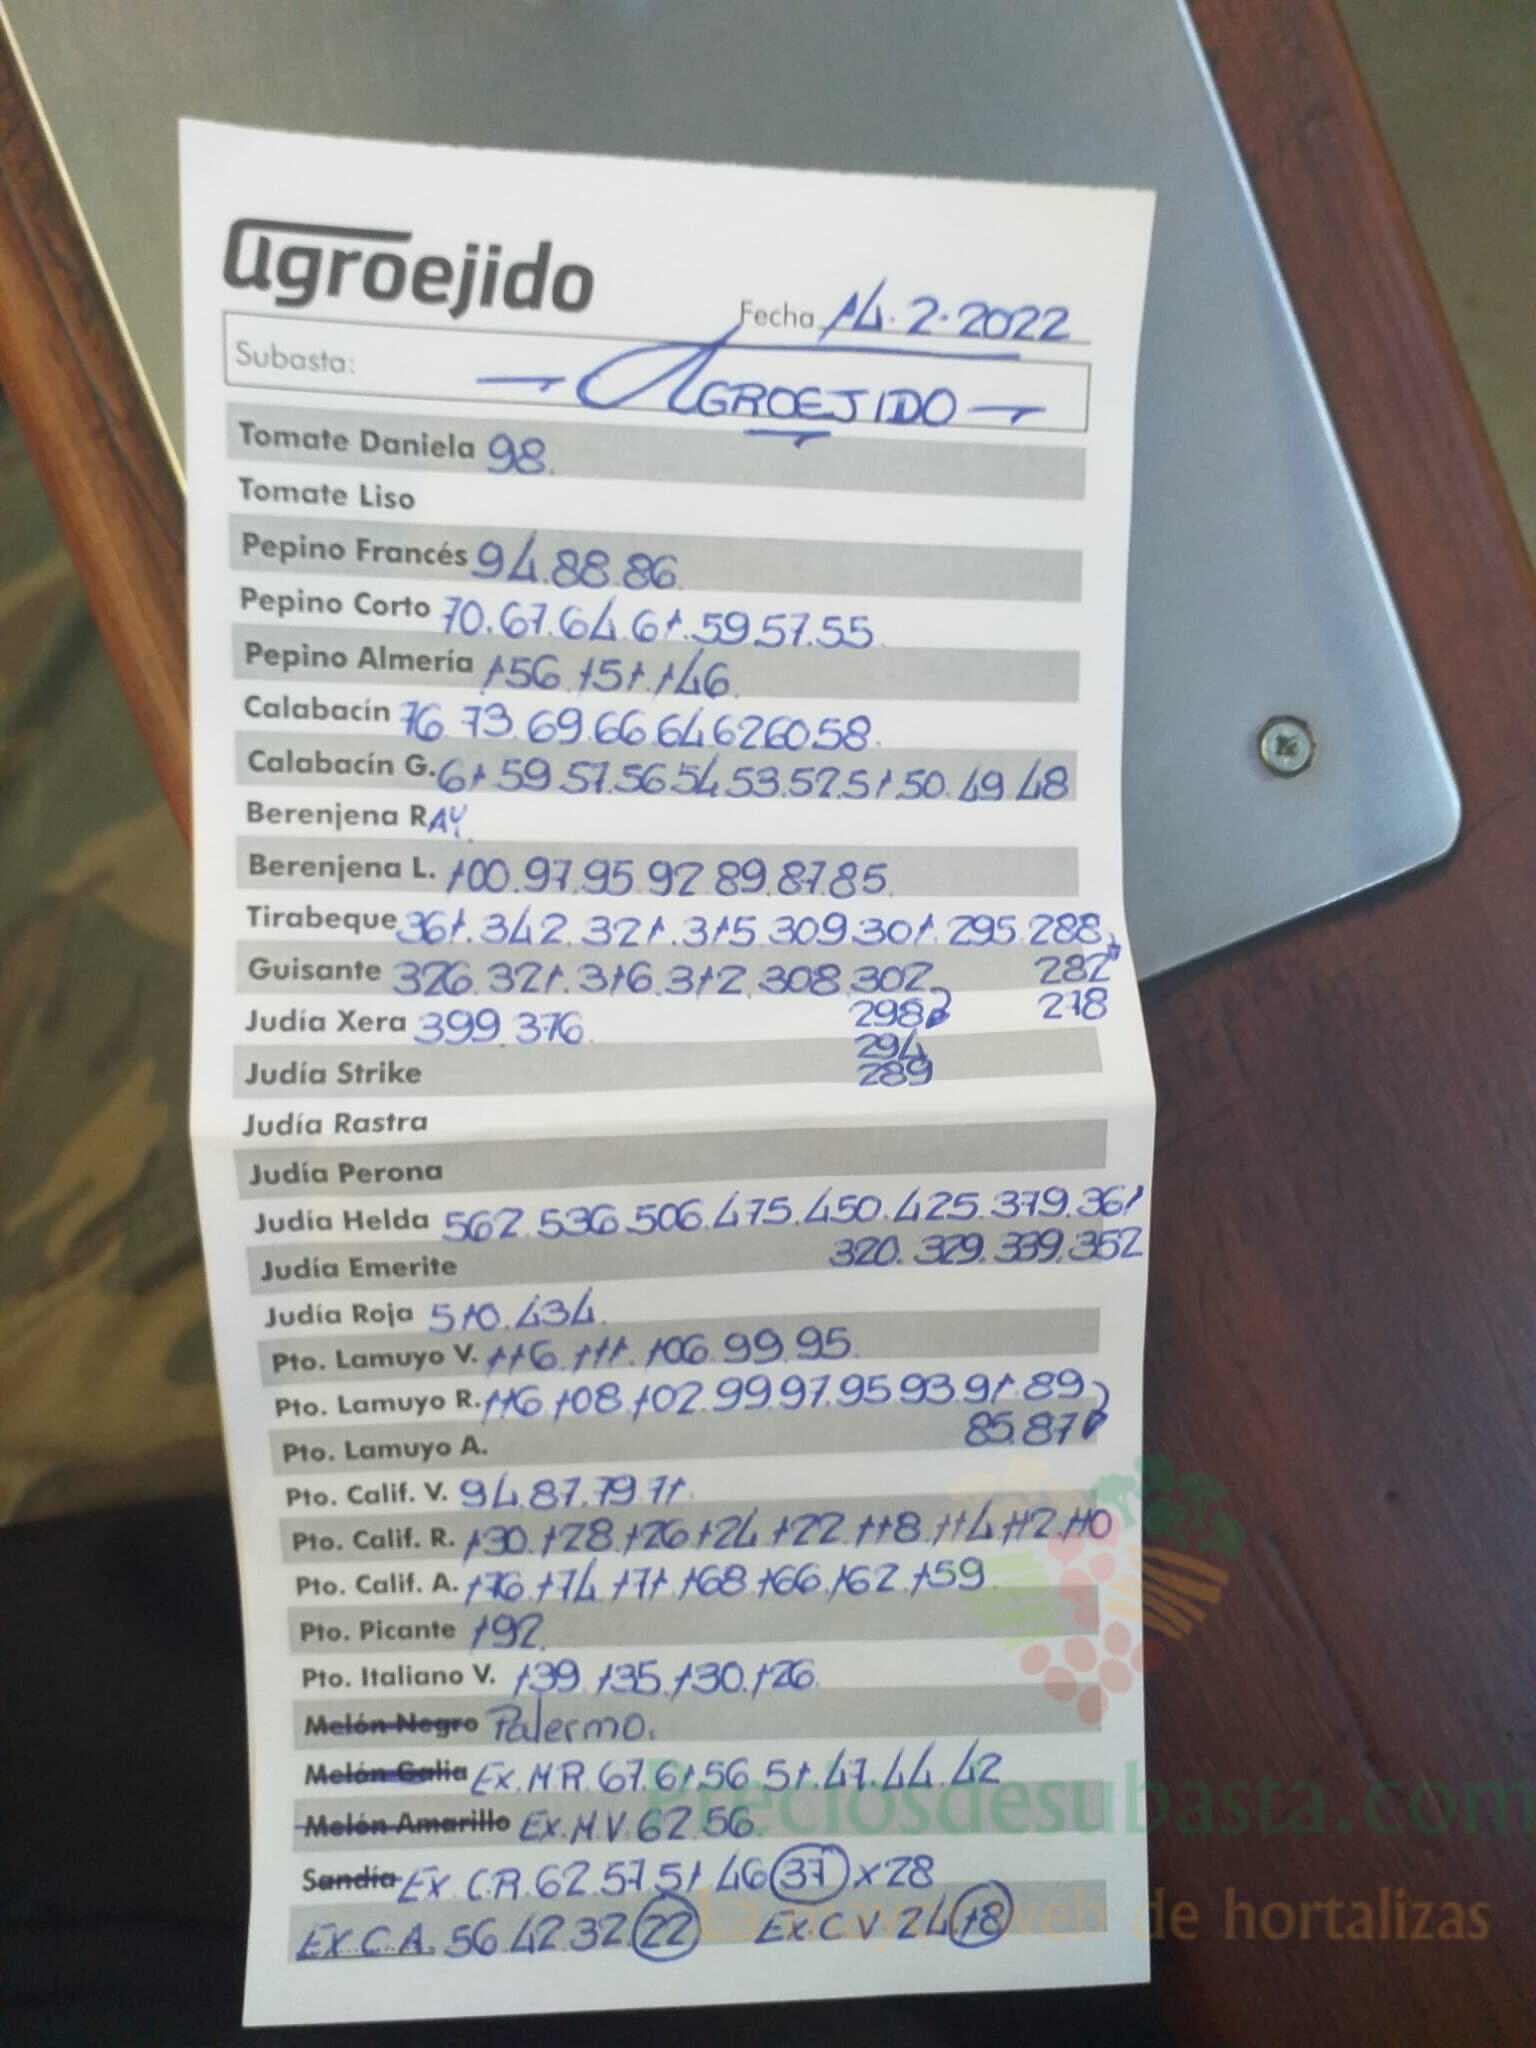 agroejido
Fecha 14.2.2022
Subasta: AGROEJIDO
Tomate Daniela 98.
Tomate Liso
Pepino Francés 94.88.86.
Pepino Corto 70.67.64.61.59.57.55.
Pepino Almería 156.151.146.
Calabacín 76.73.69.66.64.62.60.58.
Calabacín G. 61.59.57.56.54.53.52.51.50.49.48
Berenjena RAY.
Berenjena L. 100.97.95.92.89.87.85.
Tirabeque 361.342.321.315.309.301.295.288
282
278
Guisante 326.321.316.312.308.302
298
294
289
Judía Xera 399.376.
Judía Strike
Judía Rastra
Judía Perona
Judía Helda 562.536.506.475.450.425.379.361
320.329.339.352
Judía Emerite
Judía Roja 510.434.
Pto. Lamuyo V. 116.111.106.99.95.
Pto. Lamuyo R. 116.108.102.99.97.95.93.91.89
85.87
Pto. Lamuyo A.
Pto. Calif. V. 94.87.79.71.
Pto. Calif. R. 130.128.126.124.122.118.114.112.110
Pto. Calif. A. 176.174.171.168.166.162.159.
Pto. Picante 192.
Pto. Italiano V. 139.135.130.126.
Melón Negro Palermo.
Melón Galia Ex.M.R. 67.61.56.51.47.44.42
Melón Amarillo Ex.M.V. 62.56.
Sandía Ex.C.R. 62.57.51.46 37 x 28
Ex.C.A. 56.42.32 22 Ex.C.V. 24 18
Preciosdesubasta.com
La mayor web de hortalizas